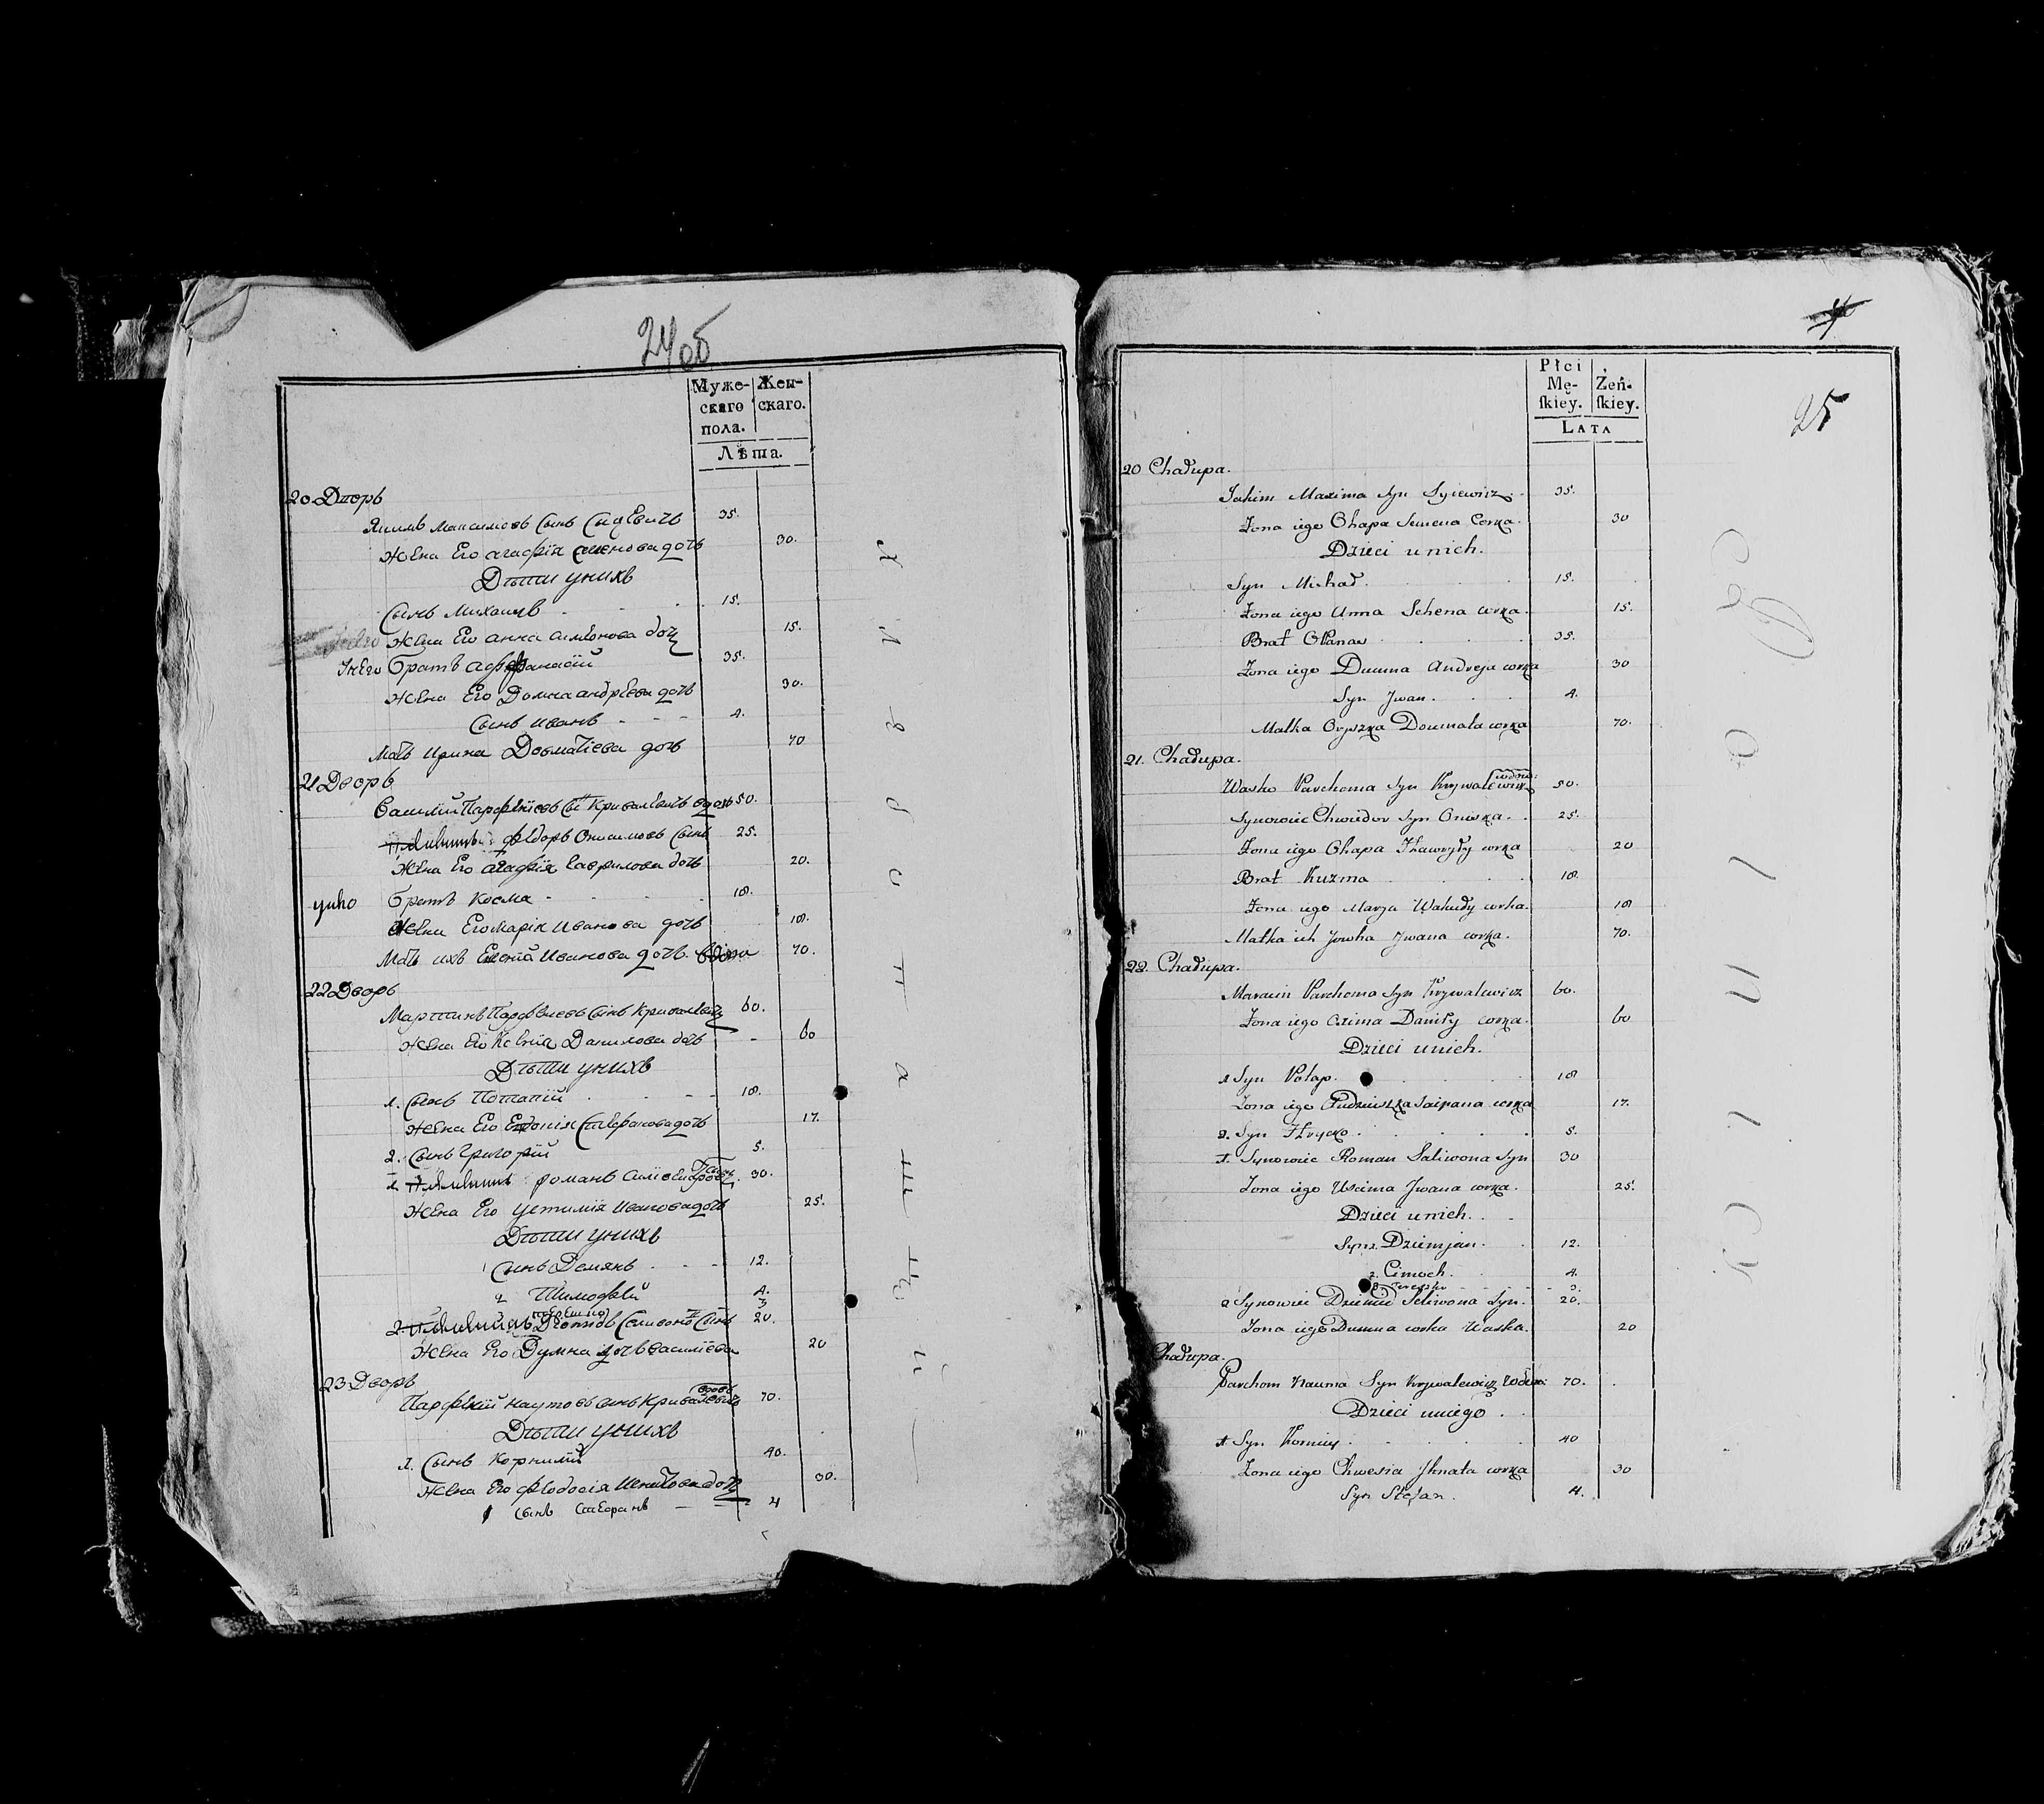 24об
Муже- Жен-
скаго скаго.
пола.
Лѣта.
20 Дворъ
Якимъ Максимовъ Сынъ Сыцевичъ 35.
Жена Его Агафія Семенова дочь 30.
Дѣти у нихъ
Сынъ Михаилъ 15.
Жена Его Анна Симеонова дочь 15.
У него Братъ Афанасій 35.
Жена Его Домна Андреева дочь 30.
Сынъ Иванъ 4.
Мать Ирина Довматіева дочь 70
21 Дворъ
Василій Парфеніевъ Сынъ Кривалевичъ вдовъ 50.
Племянникъ Федоръ Онисимовъ Сынъ 25.
Жена Его Агафія Гаврилова дочь 20.
у него Братъ Косма 18.
Жена Его Марія Иванова дочь 18.
Мать ихъ Евгенія Иванова дочь. вдова 70.
22 Дворъ
Мартинъ Парфеніевъ Сынъ Кривалевичъ 60.
Жена Его Ксенія Данилова дочь 60
Дѣти у нихъ
1. Сынъ Потапій 18.
Жена Его Евдокія Стефанова дочь 17.
2. Сынъ Григорій 5.
1. Племянникъ Романъ Сынъ 30.
Жена Его Устимія Иванова дочь 25.
Дѣти у нихъ
1 Сынъ Демянъ 12.
2 Тимофей 4.
3
2. Племянникъ Селивоновъ Сынъ 20.
Жена Его Думна дочь Василіева 20
23 Дворъ
Парфеній Наумовъ Сынъ Кривалевичъ вдовъ 70.
Дѣти у нихъ
1. Сынъ Корнилій 40.
Жена Его Феодосія Игнатова дочь 30.
1 Сынъ Стефанъ 4
25
Płci
Mę- Żeń-
ſkiey. ſkiey.
Lata
20 Chałupa.
Jakim Maxima Syn Sycewicz 35.
Żona iego Ohapa Semena Corka. 30
Dzieci u nich.
Syn Michał 15.
Żona iego Anna Schena corka. 15.
Brat Opanas 35.
Żona iego Dumna Andreja corka 30
Syn Jwan. 4.
Matka Oryszka Doumata corka 70.
21. Chałupa.
Wasko Parchoma Syn Krywalewicz wdowi: 50.
Synowiec Chwiedor Syn Oniska. 25.
Żona iego Ohapa Hawryły corka 20
Brat Kuzma 18.
Żona iego Marya Wakuły corka. 18
Matka ich Jowha Jwana corka. 70.
22. Chałupa.
Marcin Parchoma Syn Krywalewicz 60.
Żona iego Axima Daniły corka. 60
Dzieci u nich.
1 Syn Potap. 18
Żona iego corka 17.
2. Syn Hrycko 5.
1. Synowiec Roman Saliwona Syn 30
Żona iego Uscima Jwana corka. 25.
Dzieci u nich.
Syn 1. Dziemjan. 12.
2. Cimoch. 4.
3. 3.
2 Synowiec Dziemid Seliwona Syn. 20.
Żona iego Dumna corka Waska. 20
Chałupa.
Parchom Nauma Syn Krywalewicz wdow: 70.
Dzieci u niego
1 Syn Korniey 40
Żona iego Chwesia Jhnata corka 30
Syn Stefan. 4.